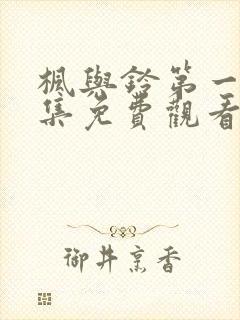 楓與鈴第一
集免費觀看
御井烹香